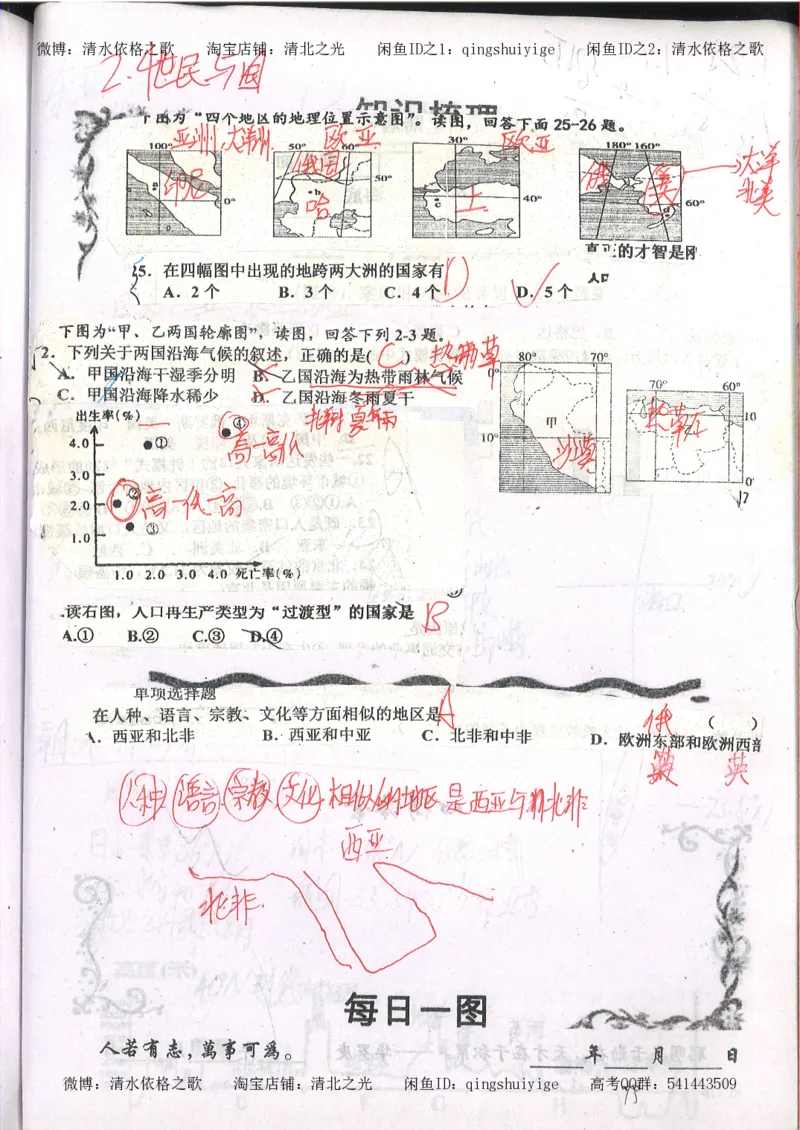 微博：清水依格之歌 淘宝店铺：清北之光 闲鱼ID之1：qingshuiyige 闲鱼ID之2：清水依格之歌
2.世民与国
知识梳理
下图为“四个地区的地理位置示意图”。读图，回答下面 25-26 题。
亚洲、大洋洲 欧亚 欧亚
100° 50° 60° 30° 180° 160°
印尼 俄国 哈 土 俄 美 大洋 北美
a 0° b 50° c 40° d 60°
真正的才智是刚
25．在四幅图中出现的地跨两大洲的国家有 D
A．2 个 B．3 个 C．4 个 D．5 个
下图为“甲、乙两国轮廓图”，读图，回答下列 2-3 题。
2．下列关于两国沿海气候的叙述，正确的是( C 热疏草
A．甲国沿海干湿季分明 B．乙国沿海为热带雨林气候
C．甲国沿海降水稀少 D．乙国沿海冬雨夏干
80° 70° 0° 10° 甲 沙漠
70° 60° 10 0° 热草
出生率(%)
4.0 3.0 2.0 1.0
① ② ③ ④
高-高低
高-低-高
1.0 2.0 3.0 4.0 死亡率(%)
.读右图，人口再生产类型为“过渡型”的国家是 B
A.① B.② C.③ D.④
单项选择题
在人种、语言、宗教、文化等方面相似的地区是 A （ ）
A．西亚和北非 B．西亚和中亚 C．北非和中非 D．欧洲东部和欧洲西部
俄 英
人种 语言 宗教 文化 相似的地区是西亚与北非
西亚
北非
每日一图
人若有志，萬事可為。
年 月 日
微博：清水依格之歌 淘宝店铺：清北之光 闲鱼ID：qingshuiyige 高考QQ群：541443509